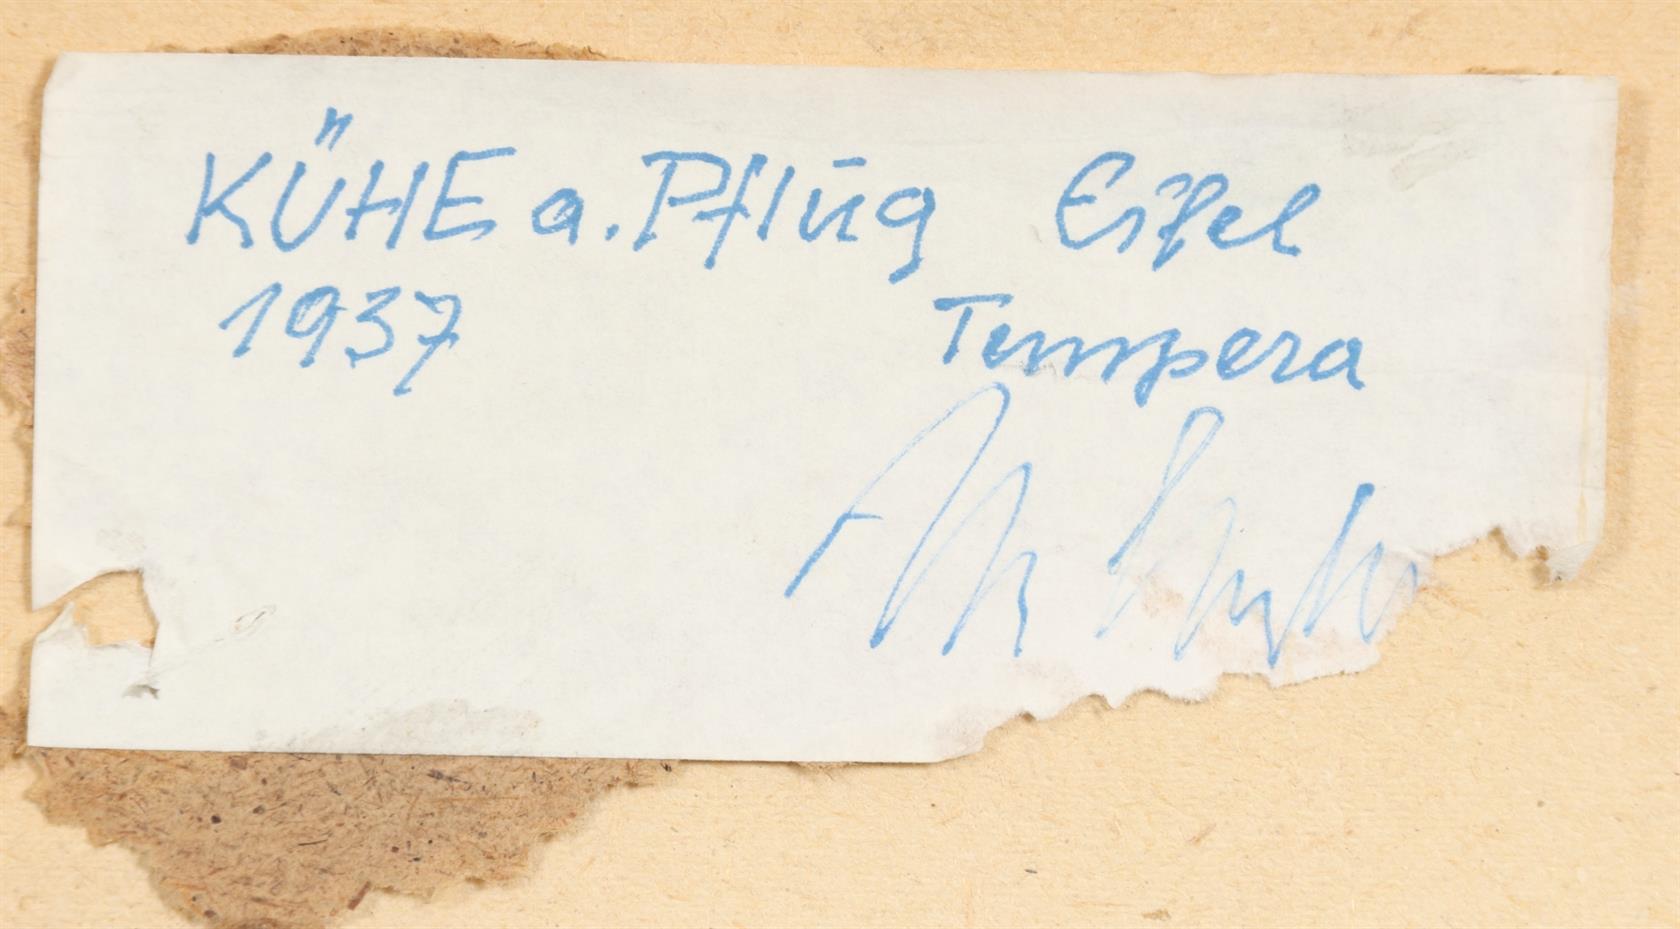 KÜHE a. Pflūg Eifel
1937 Tempera